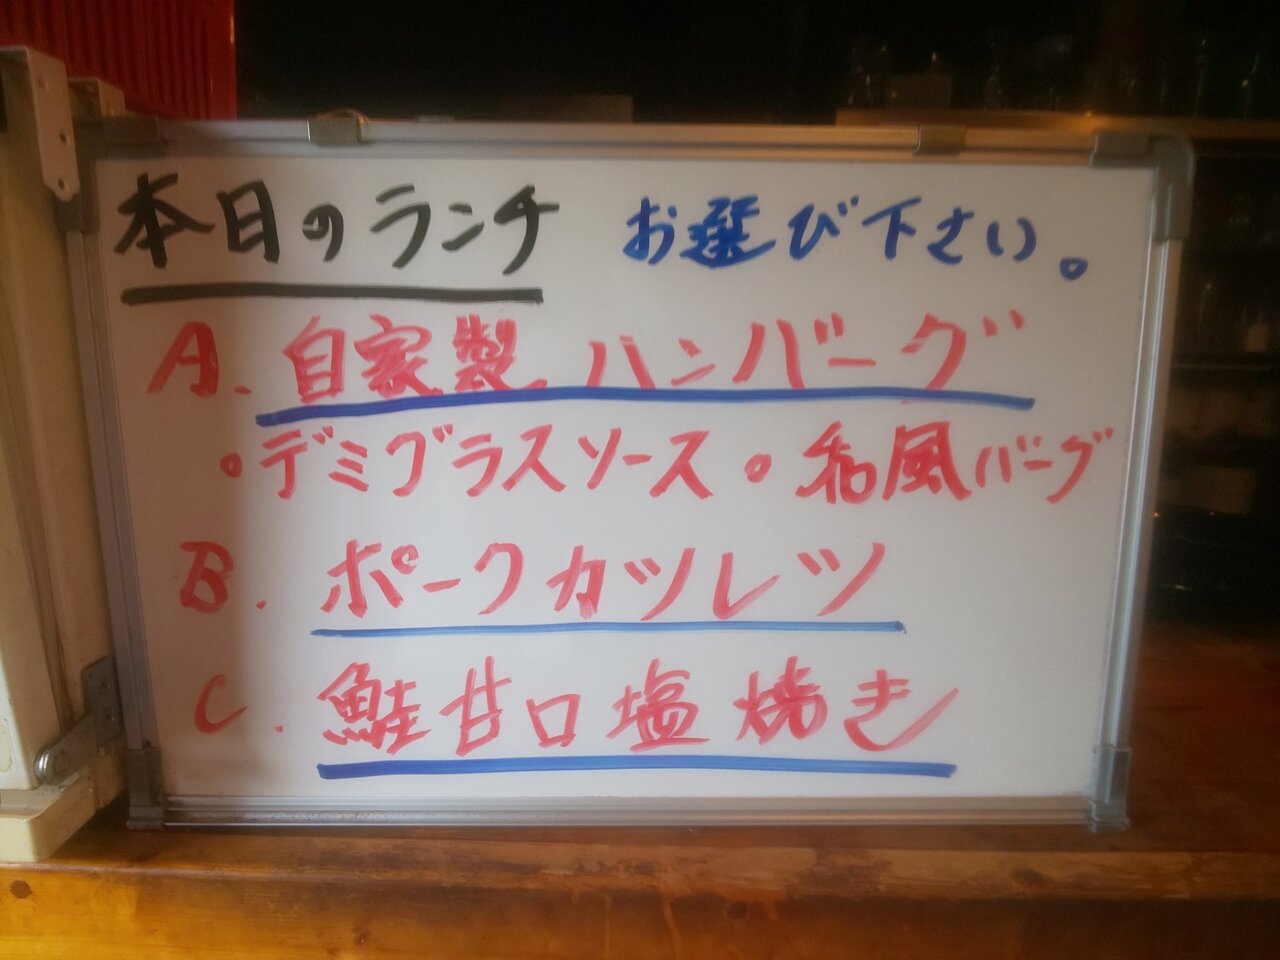 本日のランチ お選び下さい。
A. 自家製ハンバーグ
。デミグラスソース 。和風バーグ
B. ポークカツレツ
C. 鮭甘口塩焼き